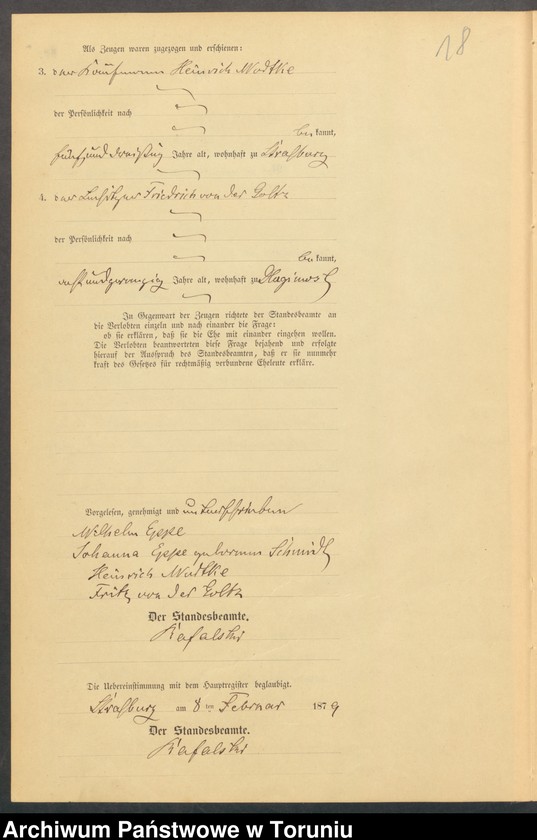 18
Als Zeugen waren zugezogen und erschienen:
3. der Kaufmann Heinrich Modtke
der Persönlichkeit nach
be kannt,
fünfunddreißig Jahre alt, wohnhaft zu Straßburg
4. der Besitzer Friedrich von der Goltz
der Persönlichkeit nach
be kannt,
achtundzwanzig Jahre alt, wohnhaft zu
In Gegenwart der Zeugen richtete der Standesbeamte an
die Verlobten einzeln und nach einander die Frage:
ob sie erklären, daß sie die Ehe mit einander eingehen wollen.
Die Verlobten beantworteten diese Frage bejahend und erfolgte
hierauf der Ausspruch des Standesbeamten, daß er sie nunmehr
kraft des Gesetzes für rechtmäßig verbundene Eheleute erkläre.
Vorgelesen, genehmigt und unterschrieben
Wilhelm Eppe
Johanna Eppe geborene Schmidt
Heinrich Modtke
Fritz von der Goltz
Der Standesbeamte.
Kafalski
Die Uebereinstimmung mit dem Hauptregister beglaubigt.
Straßburg am 8 ten Februar 1879
Der Standesbeamte.
Kafalski
Archiwum Państwowe w Toruniu